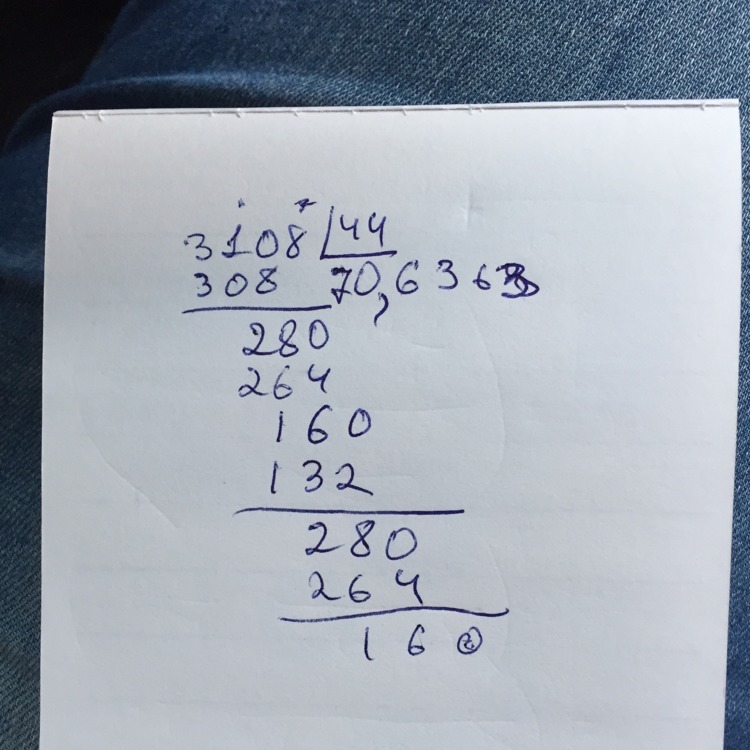 3108 44
308 70,6363
280
264
160
132
280
264
160